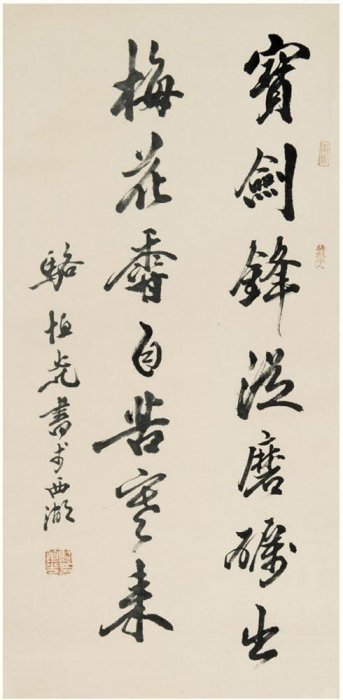 寶劍鋒從磨礪出
梅花香自苦寒來
駱恒光書於西湖